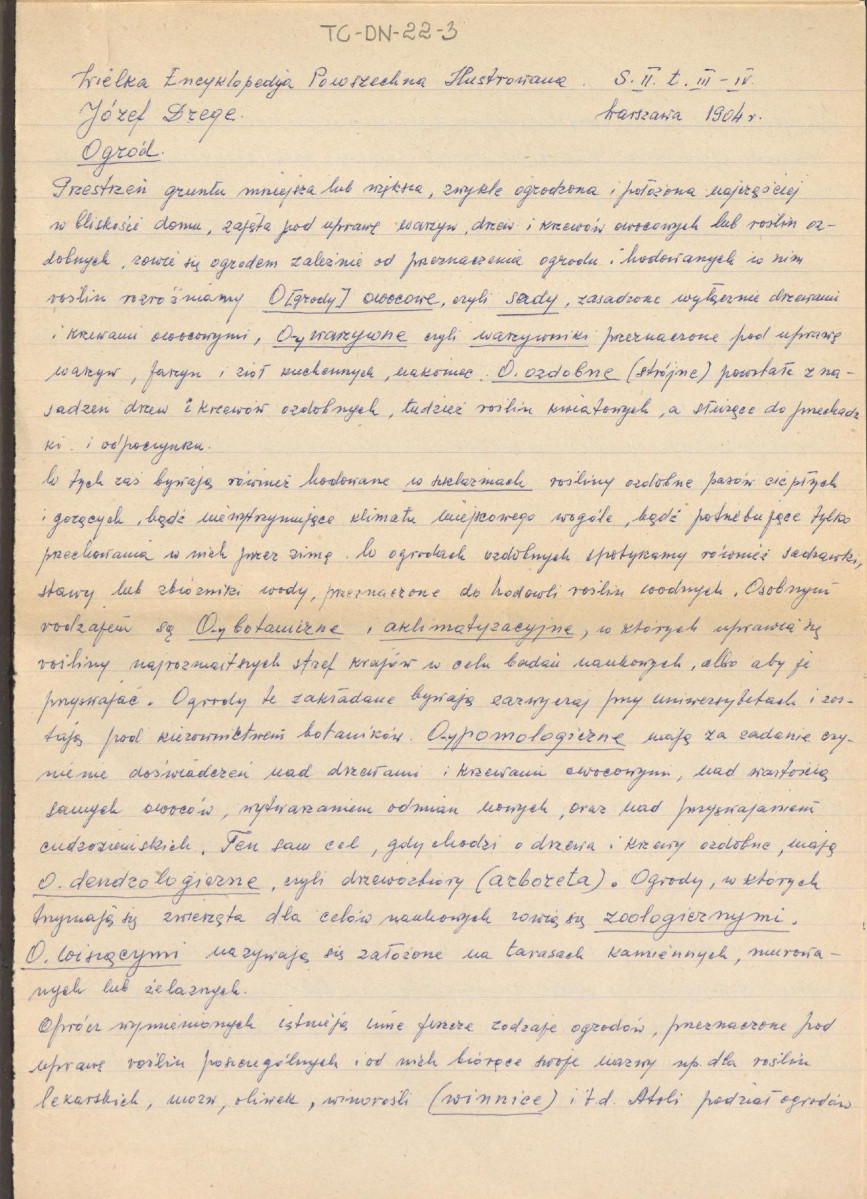 TC-DN-22-3
Wielka Encyklopedja Powszechna Ilustrowana. S. II. t. III-IV.
Józef Drege. Warszawa 1904 r.
Ogród.
Przestrzeń gruntu mniejsza lub większa, zwykle ogrodzona i położona najczęściej
w bliskości domu, zajęta pod uprawę warzyw, drzew i krzewów owocowych lub roślin oz-
dobnych, zowie się ogrodem zależnie od przeznaczenia ogrodu i hodowanych w nim
roślin rozróżniamy O[grody] owocowe, czyli sady, zasadzone wyłącznie drzewami
i krzewami owocowymi, O-y warzywne czyli warzywniki przeznaczone pod uprawę
warzyw, jarzyn i ziół kuchennych, nakoniec O. ozdobne (strojne) powstałe z na-
sadzeń drzew i krzewów ozdobnych, tudzież roślin kwiatowych, a służące do przechadz
ki i odpoczynku.
W tych zaś bywają również hodowane w szklarniach rośliny ozdobne pasów ciepłych
i gorących, bądź niewytrzymujące klimatu miejscowego wogóle, bądź potrzebujące tylko
przechowania w nich przez zimę. W ogrodach ozdobnych spotykamy również sadzawki,
stawy lub zbiorniki wody, przeznaczone do hodowli roślin wodnych. Osobnym
rodzajem są O-y botaniczne i aklimatyzacyjne, w których uprawia się
rośliny najrozmaitszych stref krajów w celu badań naukowych, albo aby je
przyswajać. Ogrody te zakładane bywają zazwyczaj przy uniwersytetach i zos-
tają pod kierownictwem botaników. O-y pomologiczne mają za zadanie czy-
nienie doświadczeń nad drzewami i krzewami owocowymi, nad wartością
samych owoców, wytwarzaniem odmian nowych, oraz nad przyswajaniem
cudzoziemskich. Ten sam cel, gdy chodzi o drzewa i krzewy ozdobne, mają
O. dendrologiczne, czyli drzewozbiory (arboreta). Ogrody, w których
trzymają się zwierzęta dla celów naukowych zowią się zoologicznymi.
O. wiszącymi nazywają się założone na tarasach kamiennych, murowa-
nych lub żelaznych.
Oprócz wymienionych istnieją inne jeszcze rodzaje ogrodów, przeznaczone pod
uprawę roślin poszczególnych i od nich biorące swoje nazwy np. dla roślin
lekarskich, morw, oliwek, winorośli (winnice) i t.d. Atoli podział ogrodów